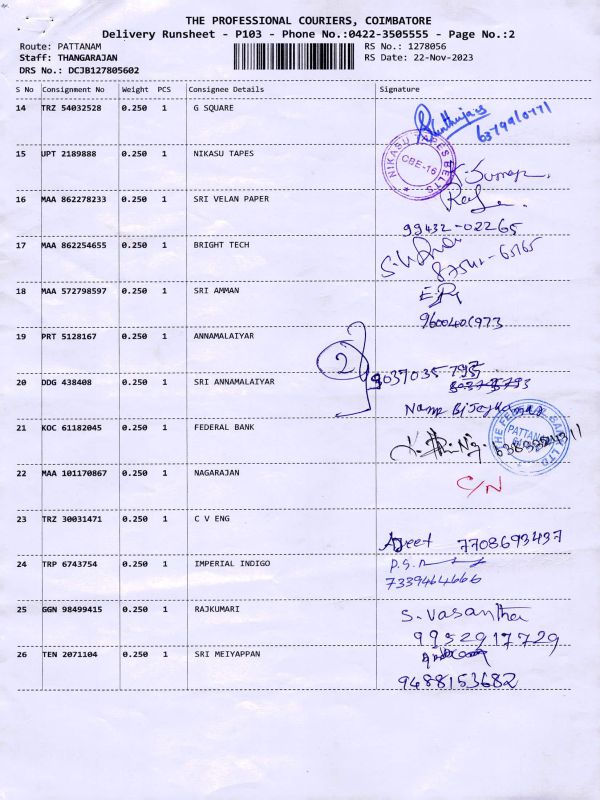 THE PROFESSIONAL COURIERS, COIMBATORE
Delivery Runsheet - P103 - Phone No.:0422-3505555 - Page No.:2
Route: PATTANAM RS No.: 1278056
Staff: THANGARAJAN RS Date: 22-Nov-2023
DRS No.: DCJB127805602
S No Consignment No Weight PCS Consignee Details Signature
14 TRZ 54032528 0.250 1 G SQUARE
6379910771
15 UPT 2189888 0.250 1 NIKASU TAPES
NIKASU TAPES BELTS CBE-16
K. Kumar
16 MAA 862278233 0.250 1 SRI VELAN PAPER
99432-02265
17 MAA 862254655 0.250 1 BRIGHT TECH
18 MAA 572798597 0.250 1 SRI AMMAN
9600401973
19 PRT 5128167 0.250 1 ANNAMALAIYAR
2
20 DDG 438408 0.250 1 SRI ANNAMALAIYAR
Name
21 KOC 61182045 0.250 1 FEDERAL BANK
THE FEDERAL BANK LTD PATTANAM
22 MAA 101170867 0.250 1 NAGARAJAN
C/N
23 TRZ 30031471 0.250 1 C V ENG
Ajeet 7708693437
24 TRP 6743754 0.250 1 IMPERIAL INDIGO
7339464666
25 GGN 98499415 0.250 1 RAJKUMARI
S. Vasantha
9952917729
26 TEN 2071104 0.250 1 SRI MEIYAPPAN
9488153682